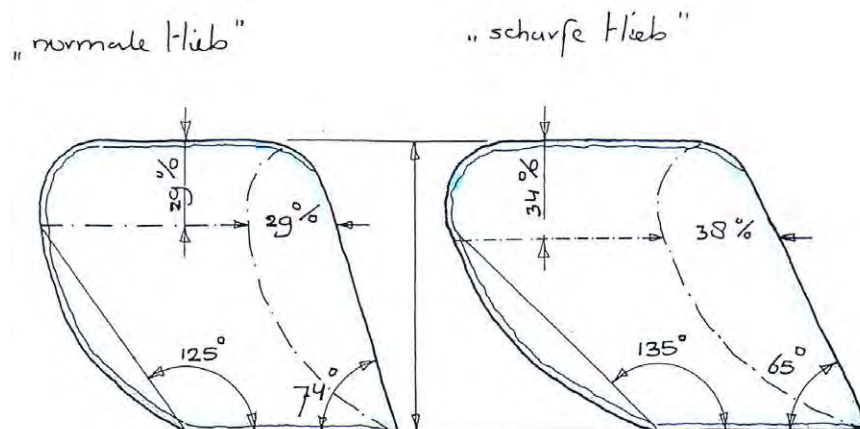 „normale Hieb”
„scharfe Hieb”
29%
29%
125°
74°
34%
38%
135°
65°